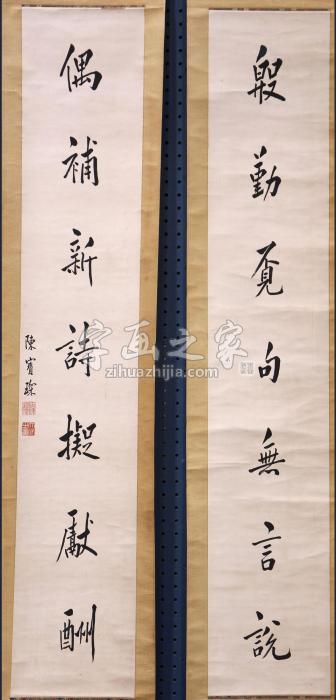 殷勤覓句無言說
偶補新詩擬獻酬
陳寶琛
字画之家
zihuazhijia.com